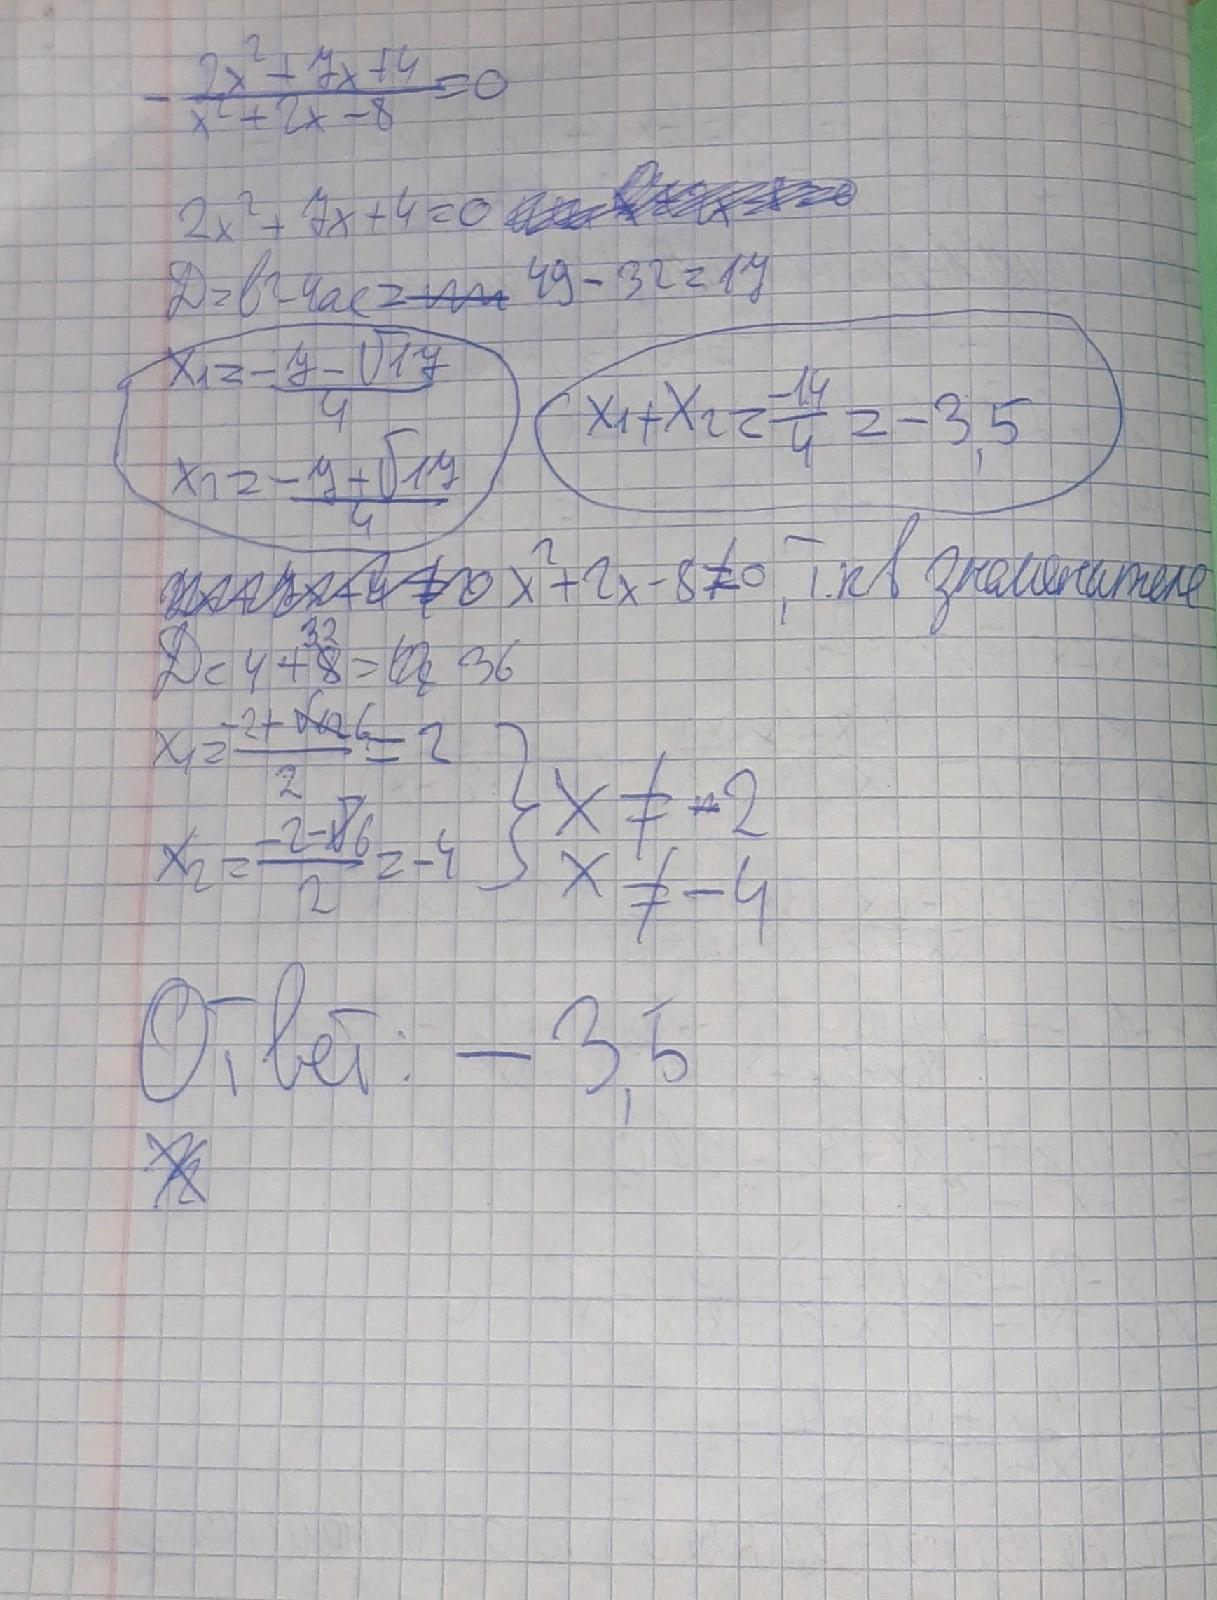 - (2x² + 7x + 4)/(x² + 2x - 8) = 0
2x² + 7x + 4 = 0
D = b² - 4ac = 49 - 32 = 17
x₁ = (-7 - √17)/4
x₂ = (-7 + √17)/4
x₁ + x₂ = -14/4 = -3,5
x² + 2x - 8 ≠ 0, т.к в знаменателе
D = 4 + 32 = 36
x₁ = (-2 + 6)/2 = 2
x₂ = (-2 - 6)/2 = -4
x ≠ 2
x ≠ -4
Ответ: -3,5